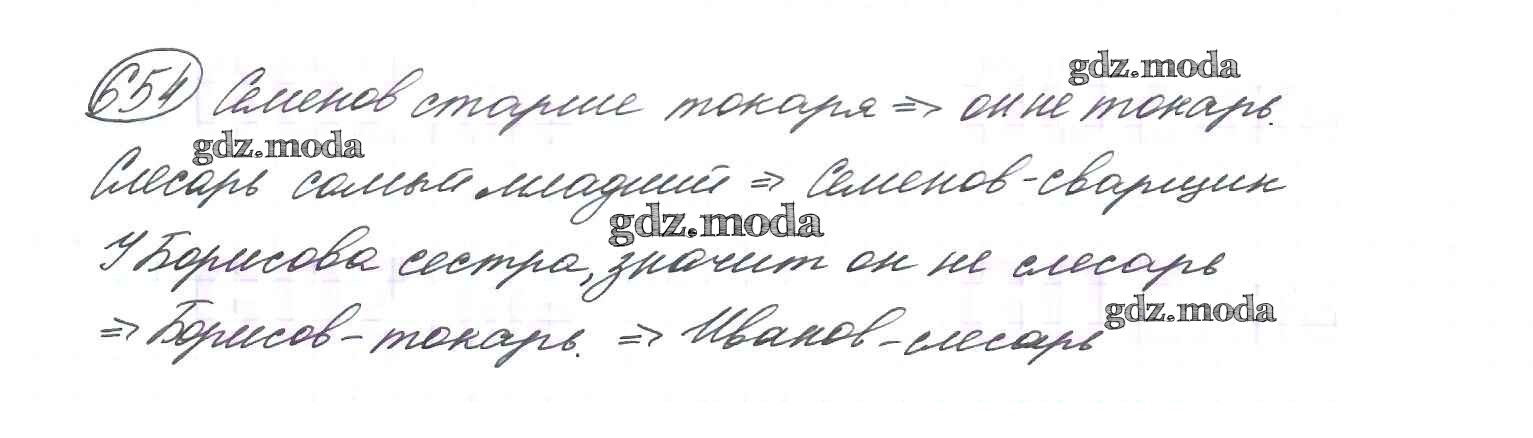 654 Семенов старше токаря => он не токарь.
gdz.moda
gdz.moda
Слесарь самый младший => Семенов-сварщик
gdz.moda
У Борисова сестра, значит он не слесарь
gdz.moda
=> Борисов-токарь. => Иванов-слесарь